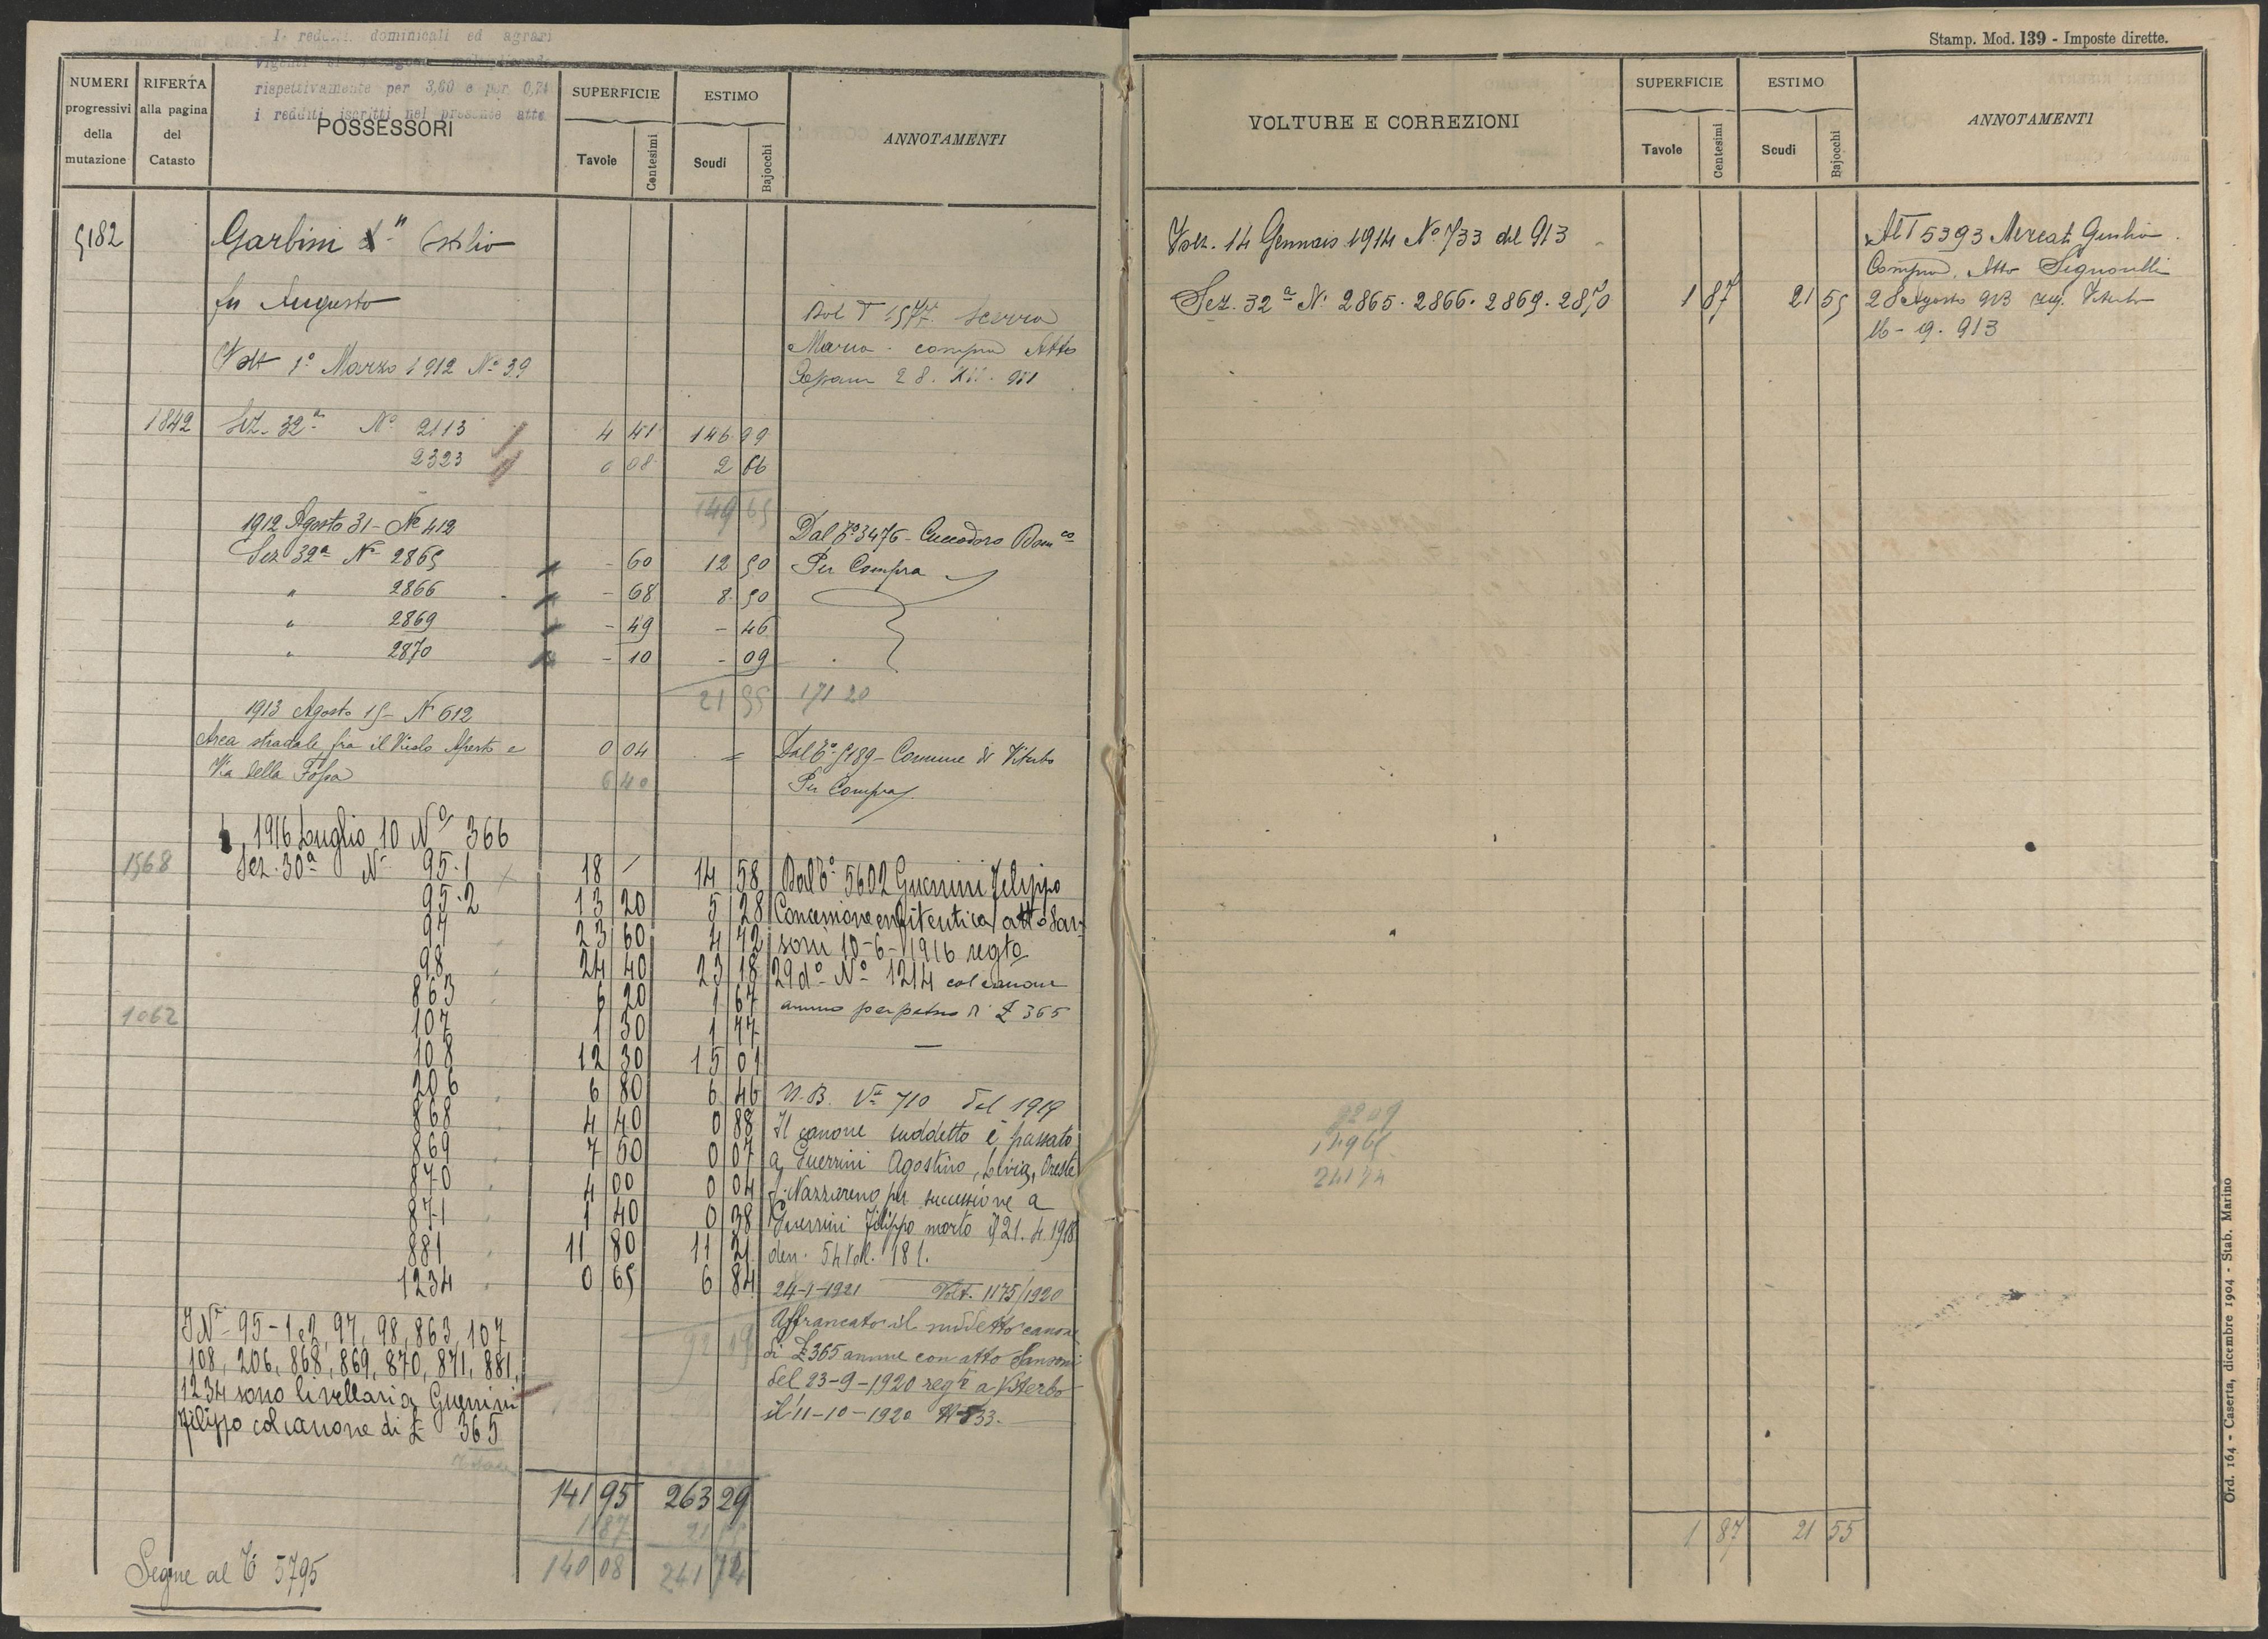 I redditi dominicali ed agrari
rispettivamente per 3,60 e per 0,74
i redditi iscritti nel presente atto
NUMERI progressivi della mutazione
RIFERTA alla pagina del Catasto
POSSESSORI
SUPERFICIE
Tavole
Centesimi
ESTIMO
Scudi
Bajocchi
ANNOTAMENTI
5182
Garbini
fu Augusto
Volt 1º Marzo 1912 Nº 39
Dal T 1577
Maria - compra Atto
28. XII. 911
1842 Sez. 32ª Nº 2113 4 41 146 99
2323 0 08 2 66
149 65
1912 Agosto 31 - Nº 412
Sez 32ª Nº 2865 - 60 12 50
" 2866 - 68 8 50
" 2869 - 49 - 46
" 2870 - 10 - 09
21 55 171 20
Dal Tº 3476 - Cuccodoro Domco
Per Compra
1913 Agosto 15 - N 612
Area stradale fra il Vicolo Aperto e 0 04 =
Via della Fossa 6 40
Dal Tº 5189 - Comune di Viterbo
Per Compra
1916 Luglio 10 Nº 366
1568 Sez. 30ª Nº 95.1 18 / 14 58
95.2 13 20 5 28
97 23 60 4 72
98 24 40 23 18
863 6 20 1 67
1062 107 1 30 1 77
108 12 30 15 01
206 6 80 6 46
868 4 40 0 88
869 7 50 0 07
870 4 00 0 04
871 1 40 0 38
881 11 80 11 21
1234 0 65 6 84
92 09
Dal Tº 5602 Guerrini Filippo
Concessione enfiteutica atto San-
soni 10-6-1916 regto
29 dº Nº 1214 col canone
annuo perpetuo di £ 365
N.B. Vª 710 del 1919
Il canone suddetto è passato
a Guerrini Agostino, Livia, Oreste
Nazzareno per successione a
Guerrini Filippo morto il 21.4.1918
den. 54 Vol. 181.
24-1-1921 Volt. 1175/1920
Affrancato il suddetto canone
di £ 365 annue con atto Sansoni
del 23-9-1920 regto a Viterbo
il 11-10-1920 Nº 533.
I Nri 95-1 e 2, 97, 98, 863, 107
108, 206, 868, 869, 870, 871, 881,
1234 sono livellari a Guerrini
Filippo col canone di £ 365
141 95 263 29
1 87 21 55
140 08 241 74
Segue al Tº 5795
Stamp. Mod. 139 - Imposte dirette.
VOLTURE E CORREZIONI
SUPERFICIE
Tavole
Centesimi
ESTIMO
Scudi
Bajocchi
ANNOTAMENTI
Volt. 14 Gennaio 1914 Nº 733 del 913
Sez. 32ª Nº 2865. 2866. 2869. 2870 1 87 21 55
Al T 5393 Mercati Giulio
Compra, Atto Signorelli
28 agosto 913 reg. Viterbo
16-9-913
92 09
149 65
241 74
1 87 21 55
Ord. 164 - Caserta, dicembre 1904 - Stab. Marino